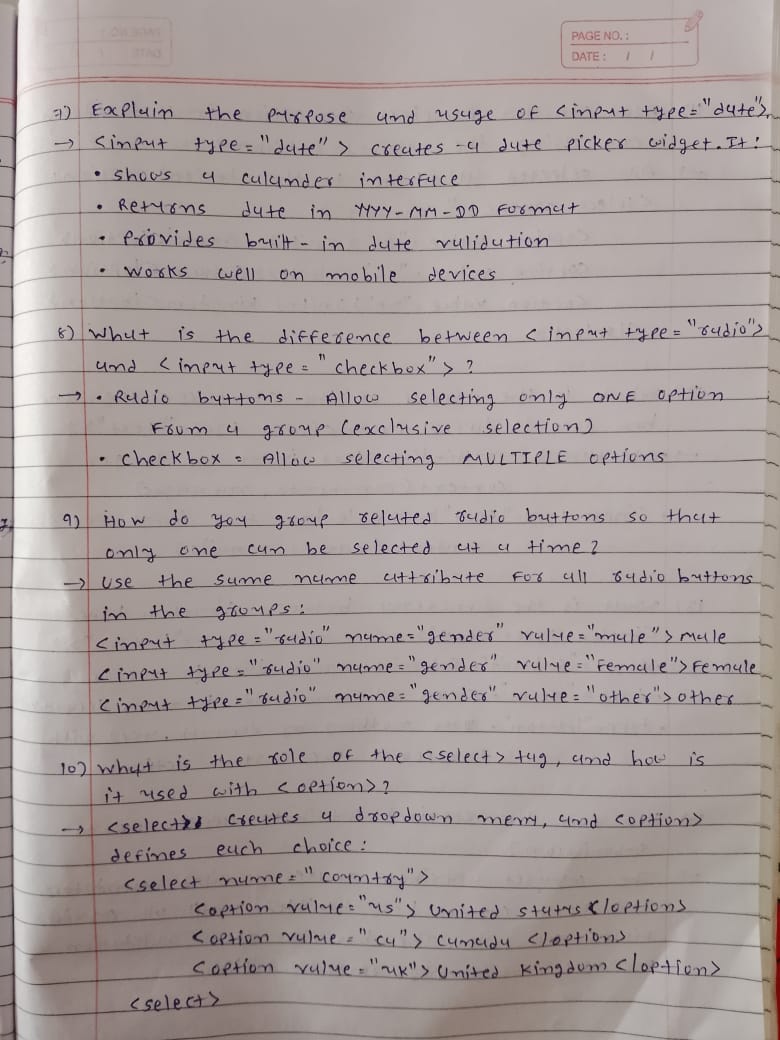 PAGE NO. :
DATE : / /
7) Explain the purpose and usage of <input type="date">.
→ <input type="date"> creates a date picker widget. It:
• shows a calander interface
• Returns date in YYYY-MM-DD Format
• Provides built-in date validation
• works well on mobile devices
8) What is the difference between <input type="radio">
and <input type="checkbox"> ?
→ • Radio buttons - Allow selecting only ONE option
From a group (exclusive selection)
• checkbox = Allow selecting MULTIPLE options
9) How do you group related radio buttons so that
only one can be selected at a time?
→ Use the same name attribute For all radio buttons
in the groups:
<input type="radio" name="gender" value="male"> male
<input type="radio" name="gender" value="Female"> Female
<input type="radio" name="gender" value="other"> other
10) what is the role of the <select> tag, and how is
it used with <option>?
→ <select> creates a dropdown menu, and <option>
defines each choice:
<select name="country">
<option value="us"> United states </option>
<option value="ca"> Canada </option>
<option value="uk"> United Kingdom </option>
<select>